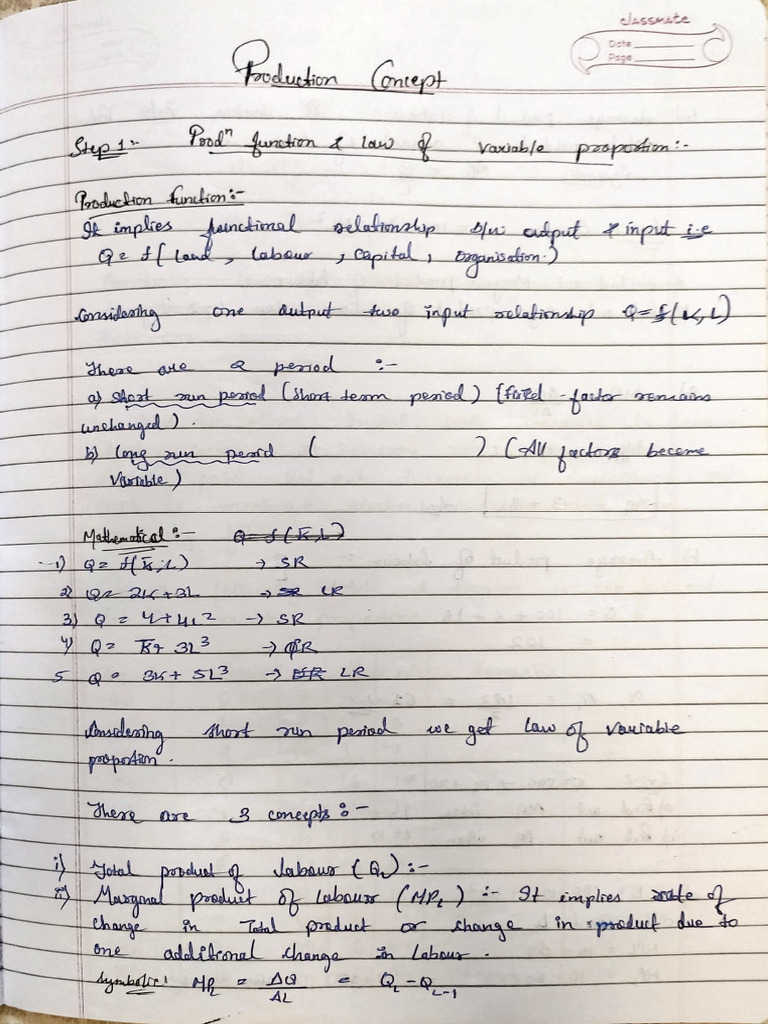 classmate
Date
Page
Production Concept
Step 1:- Prodⁿ function & law of variable proportion:-
Production function:-
It implies functional relationship b/w output & input i.e
Q = f( Land , labour , capital , organisation.)
Considering one output two input relationship Q=f(K, L)
There are 2 period :-
a) short run period (short term period) [fixed -factor remains
unchanged).
b) long run period ( ) (All factors become
variable)
Mathematical:- Q = f(K̅,L)
1) Q = f(K̅,L) → SR
2) Q = 2K+3L → LR
3) Q = 4+4L² → SR
4) Q = K̅+ 3L³ → R
5 Q = 3K+ 5L³ → LR
Considering short run period we get law of variable
proportion.
There are 3 concepts:-
i) Total product of labour (Q_L):-
ii) Marginal product of labour (MP_L) :- It implies rate of
change in Total product or change in product due to
one additional change in Labour.
Symbolic: MP_L = ΔQ/ΔL = Q_L - Q_L-1